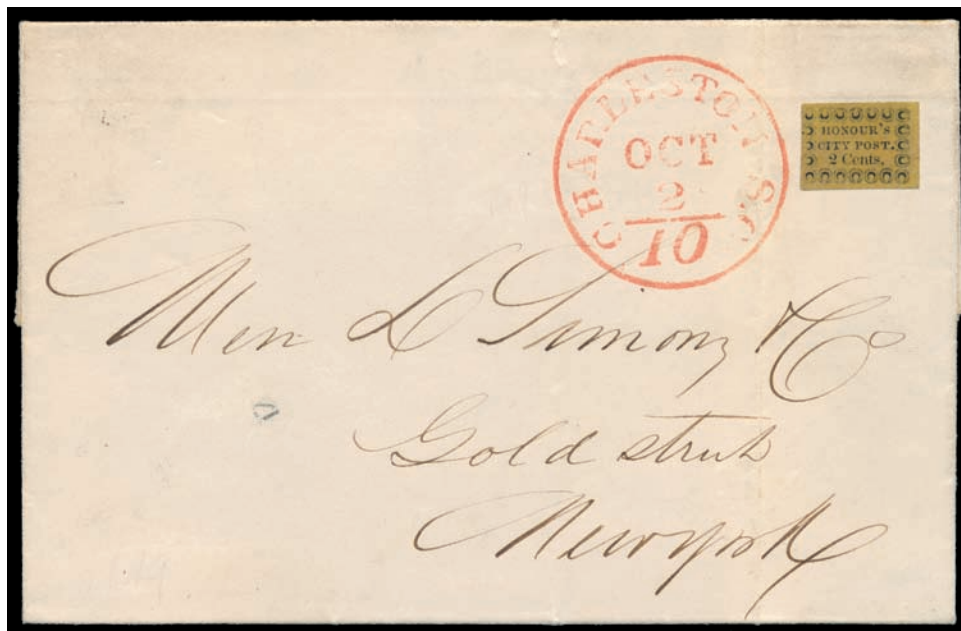 CHARLESTON S.C
OCT
2
10
HONOUR'S
CITY POST.
2 Cents.
Messrs L Timony & Co
Gold street
Newyork